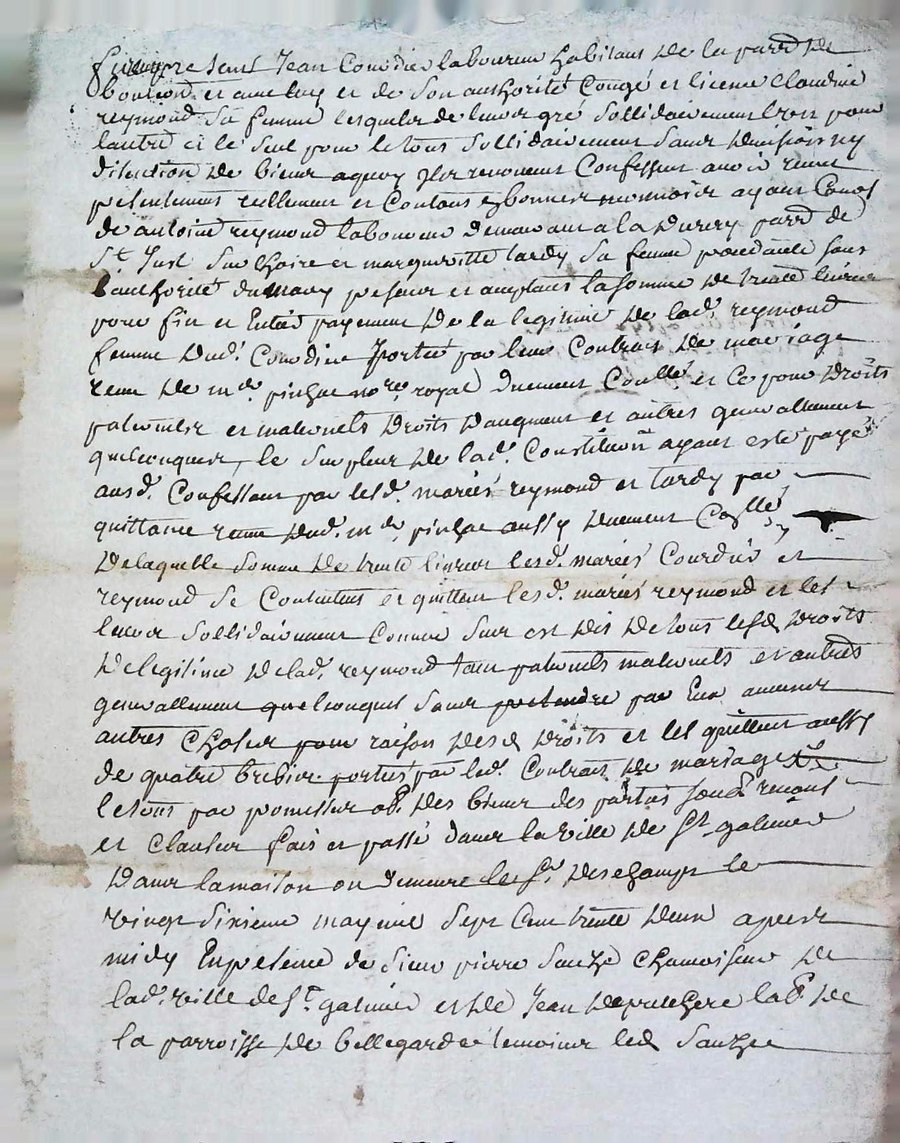 furent presents Jean Courdier laboureur habitant de la parr. de
bouteon et avec luy et de son authorité congé et licence Claudine
reymond sa femme lesquels de leur gré sollidairement l'un pour
lautre et le seul pour le tous sollidairement sans division ny
discution de biens aquoy ils renoncent Confessent avoir reçeu
presentement reellement et Contans en bonne monnoie ayant Cours
de antoine reymond laboureur demeurant a la parr. de
St. Just Sur Loire et margueritte tardy sa femme procedante sous
lauthorité du mary presens et acceptans la somme de trente livres
pour fin et Entier payement de la legitime de lad. reymond
femme dud. Courdier Portée par leur Contrait de mariage
receu de me. pinhac nore. royal duement Conllé et ce pour droits
paternels et maternels droits daugment et autres generallement
quelconques, le surplus de lad. Constitution ayant esté payé
ausd. Confessans par lesd. mariés reymond et tardy par
quittance receue dud. me. pinhac aussy duement Conllé
de laquelle somme de trente livres lesd. mariés Courdier et
reymond se Contentent et quittent lesd. mariés reymond et les
leurs sollidairement Comme sus est dit de tous lesd droits
de legitime de lad. reymond tant paternels maternels et autres
generallement quelconques sans pretendre par Eux
autres choses pour raison desd droits et les quittent aussy
de quatre brebis portées par led. Contrait de mariage
le tous par promesses ob. des biens des parties renons
et clauses fait et passé dans la ville de St galmier
dans la maison ou demeure le Sr. deschamps le
vingt sixieme may mil sept Cent trente deux apres
midy En presence de Sieur pierre Sauze chamoiseur de
lad. ville de St. galmier et de Jean lab. de
la parroisse de bellegarde temoins led Sauze